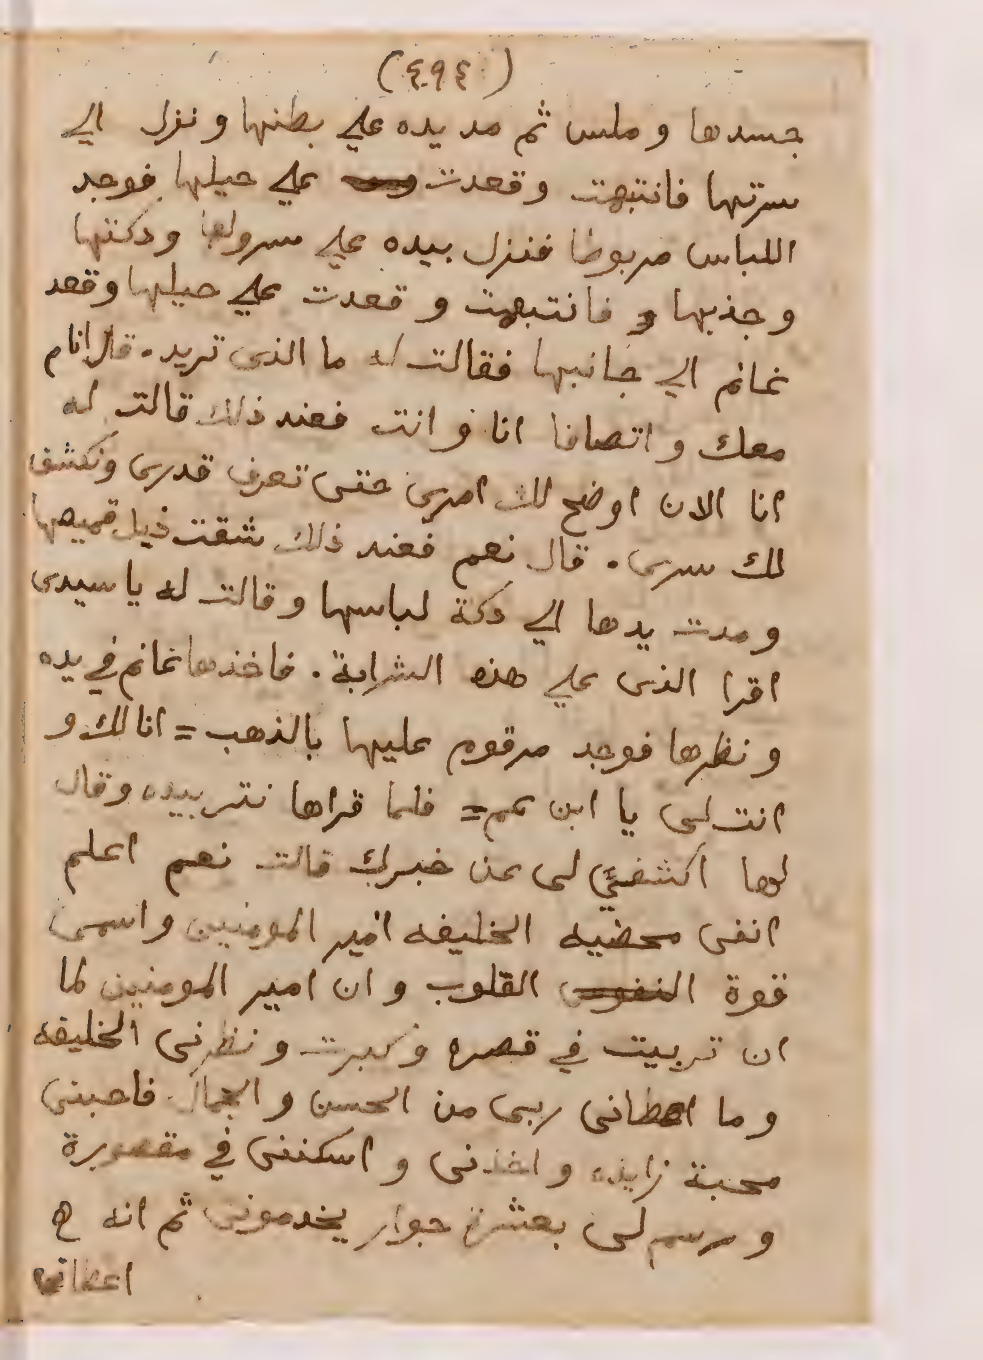 (٤٩٤)
جسدها وملس ثم مد يده علي بطنها ونزل الي
سرتها فانتبهت وقعدت علي حيلها فوجد
اللباس مربوطا فنزل بيده علي سرولها ودكتها
وجذبها و فانتبهت وقعدت علي حيلها وقعد
غانم الي جانبها فقالت له ما الذى تريد. قال انام
معك واتصافا انا وانت فعند ذلك قالت له
انا الان اوضح لك امرى حتى تعرف قدرى ونكشف
لك سرى. قال نعم فعند ذلك شقت ذيل قميصها
ومدت يدها الي دكة لباسها وقالت له يا سيدى
اقرا الذى علي هذه الشرابة. فاخذها غانم في يده
ونظرها فوجد مرقوم عليها بالذهب = انا لك و
انت لى يا ابن عم = فلما قراها نتر بيده وقال
لها اكشفي لى عن خبرك قالت نعم اعلم
اننى محضيه الخليفه امير المومنين واسمى
قوة القلوب وان امير المومنين لما
ان تربيت في قصره وكبرت ونظرنى الخليفه
وما اعطانى ربى من الحسن والجمال فاحبنى
محبة زايده واخذنى واسكننى في مقصورة
ورسم لى بعشرة جوار يخدمونى ثم انه
اعطانى